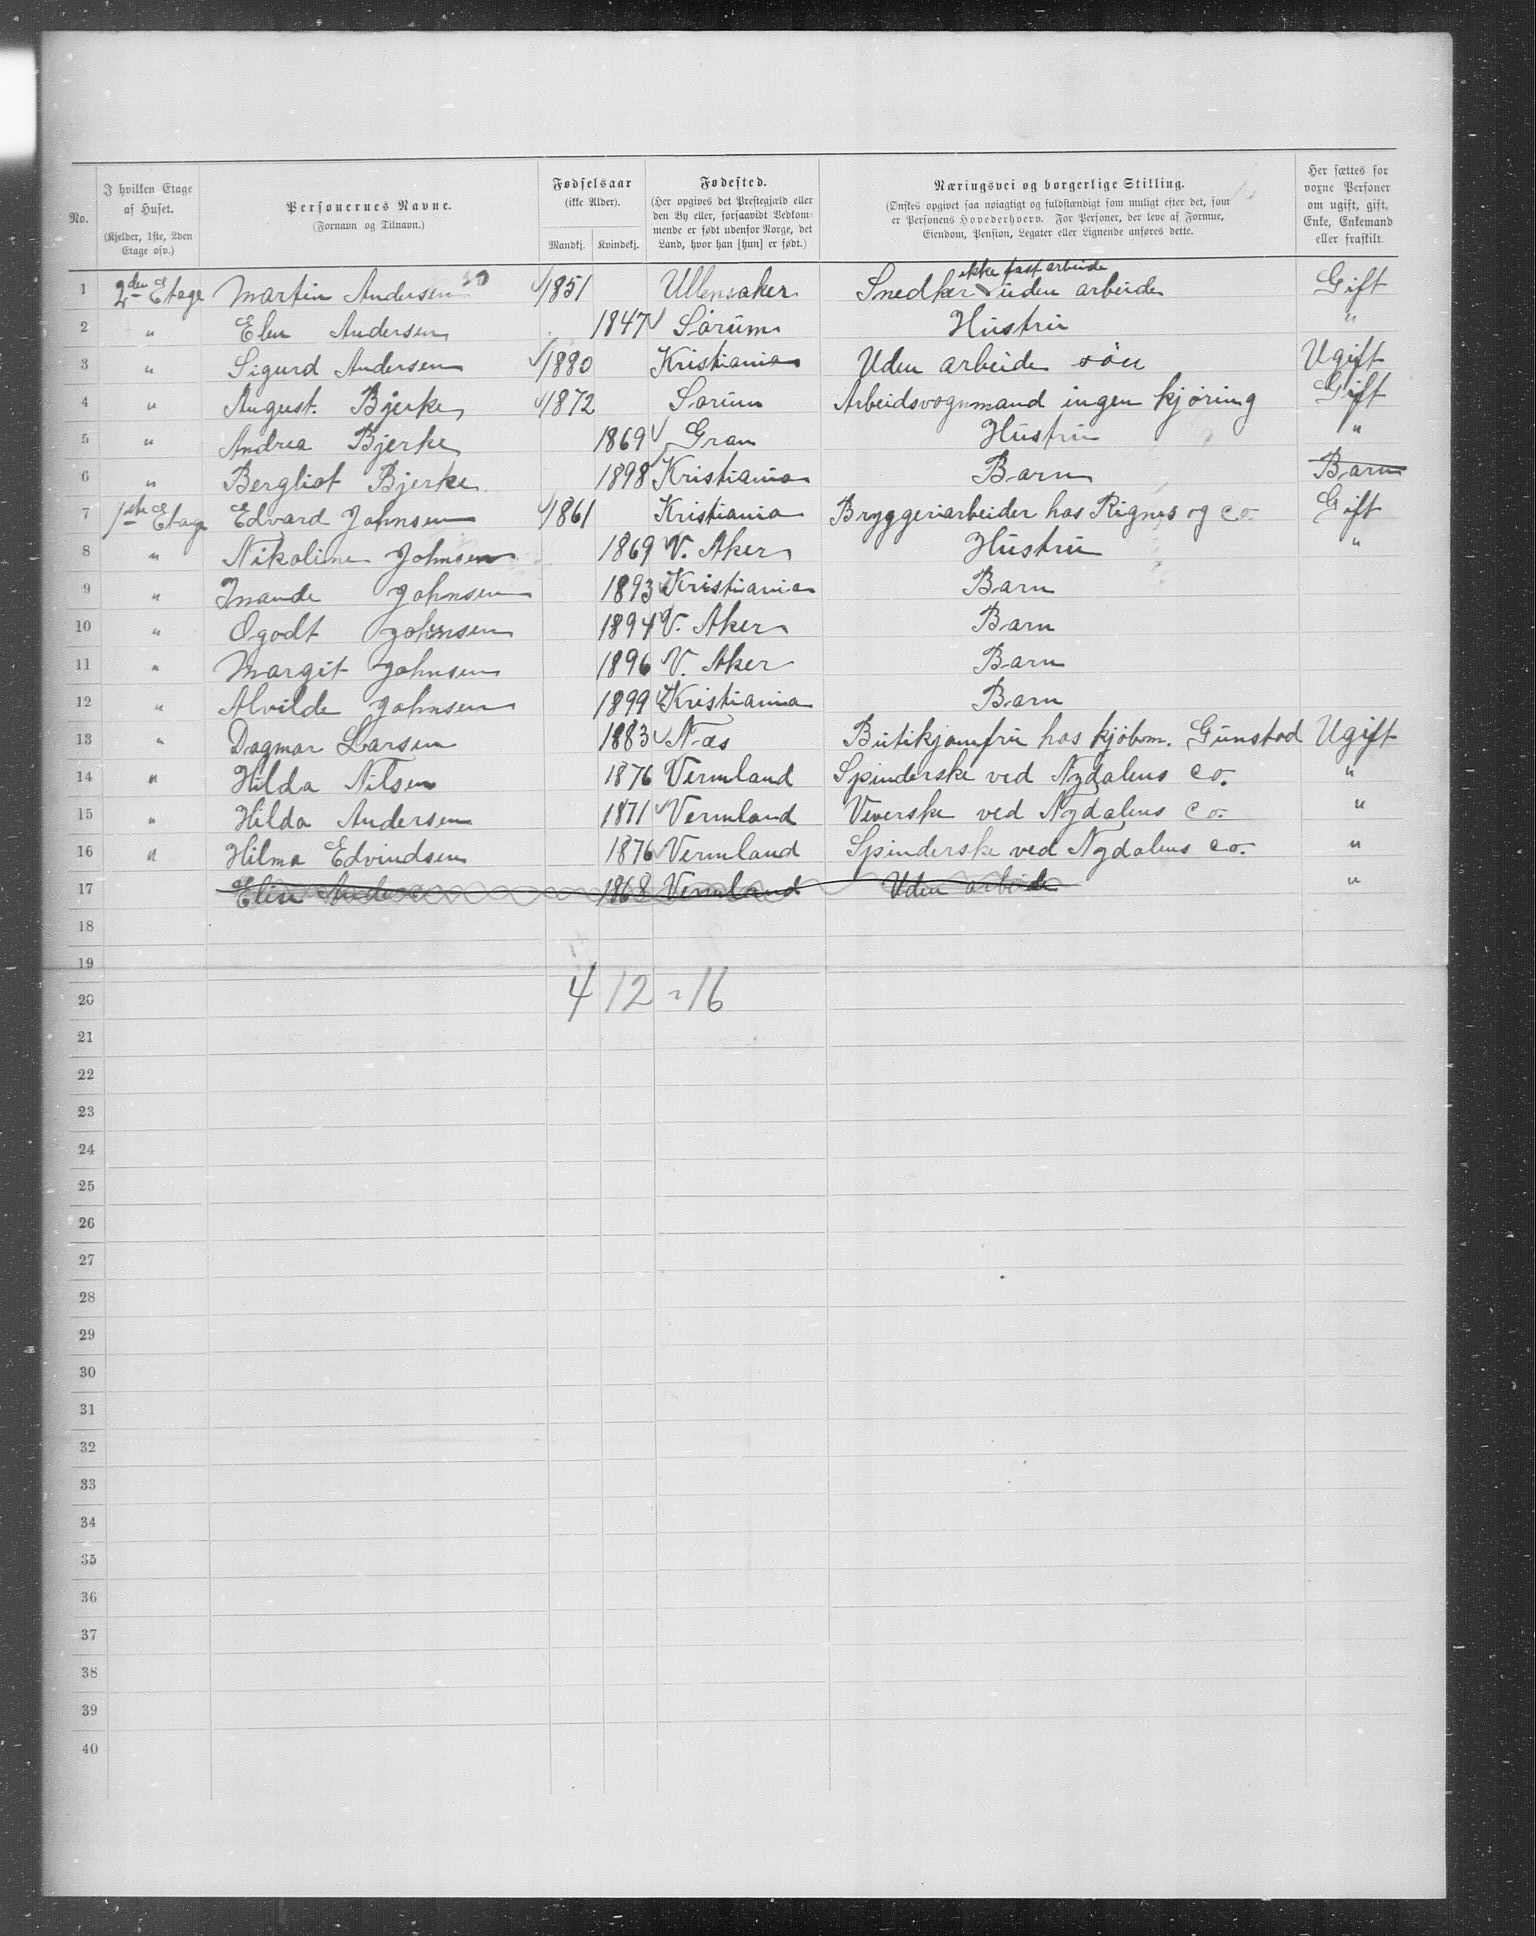 No.
I hvilken Etage af Huset.
(Kjelder, 1ste, 2den Etage osv.)
Personernes Navne.
(Fornavn og Tilnavn.)
Fødselsaar
(ikke Alder).
Mandkj. Kvindekj.
Fødested.
(Her opgives det Præstegjæld eller den By eller, forsaavidt Vedkommende er født udenfor Norge, det Land, hvor han [hun] er født.)
Næringsvei og borgerlige Stilling.
(Ønskes opgivet saa nøiagtigt og fuldstændigt som muligt efter det, som er Personens Hovederhverv. For Personer, der leve af Formue, Eiendom, Pension, Legater eller Lignende anføres dette.
Her sættes for voxne Personer om ugift, gift, Enke, Enkemand eller fraskilt.
1 2den Etage Martin Andersen 1851 Ullensaker Snedker ikke fast arbeide uden arbeide Gift
2 " Elen Andersen 1847 Sørum Hustru "
3 " Sigurd Andersen 1880 Kristiania Uden arbeide søn Ugift
4 " August. Bjerke 1872 Sørum Arbeidsvognmand ingen kjøring Gift
5 " Andrea Bjerke 1869 Gran Hustru "
6 " Bergliot Bjerke 1898 Kristiania Barn Barn
7 1ste Etage Edvard Johnsen 1861 Kristiania Bryggeriarbeider hos Rignes og Co. Gift
8 " Nikoline Johnsen 1869 V. Aker Hustru "
9 " Inanda Johnsen 1893 Kristiania Barn
10 " Ogodt Johnsen 1894 V. Aker Barn
11 " Margit Johnsen 1896 V. Aker Barn
12 " Alvilde Johnsen 1899 Kristiania Barn
13 " Dagmar Larsen 1883 Næs Butikjomfru hos kjøbm. Gunstad Ugift
14 " Hilda Nilsen 1876 Vermland Spinderske ved Nydalens Co. "
15 " Hilda Andersen 1871 Vermland Veverske ved Nydalens Co. "
16 " Hilma Edvindsen 1876 Vermland Spinderske ved Nydalens Co. "
17 Elise 1868 Vermland Uden arbeide "
18
19
20 4 12 = 16
21
22
23
24
25
26
27
28
29
30
31
32
33
34
35
36
37
38
39
40